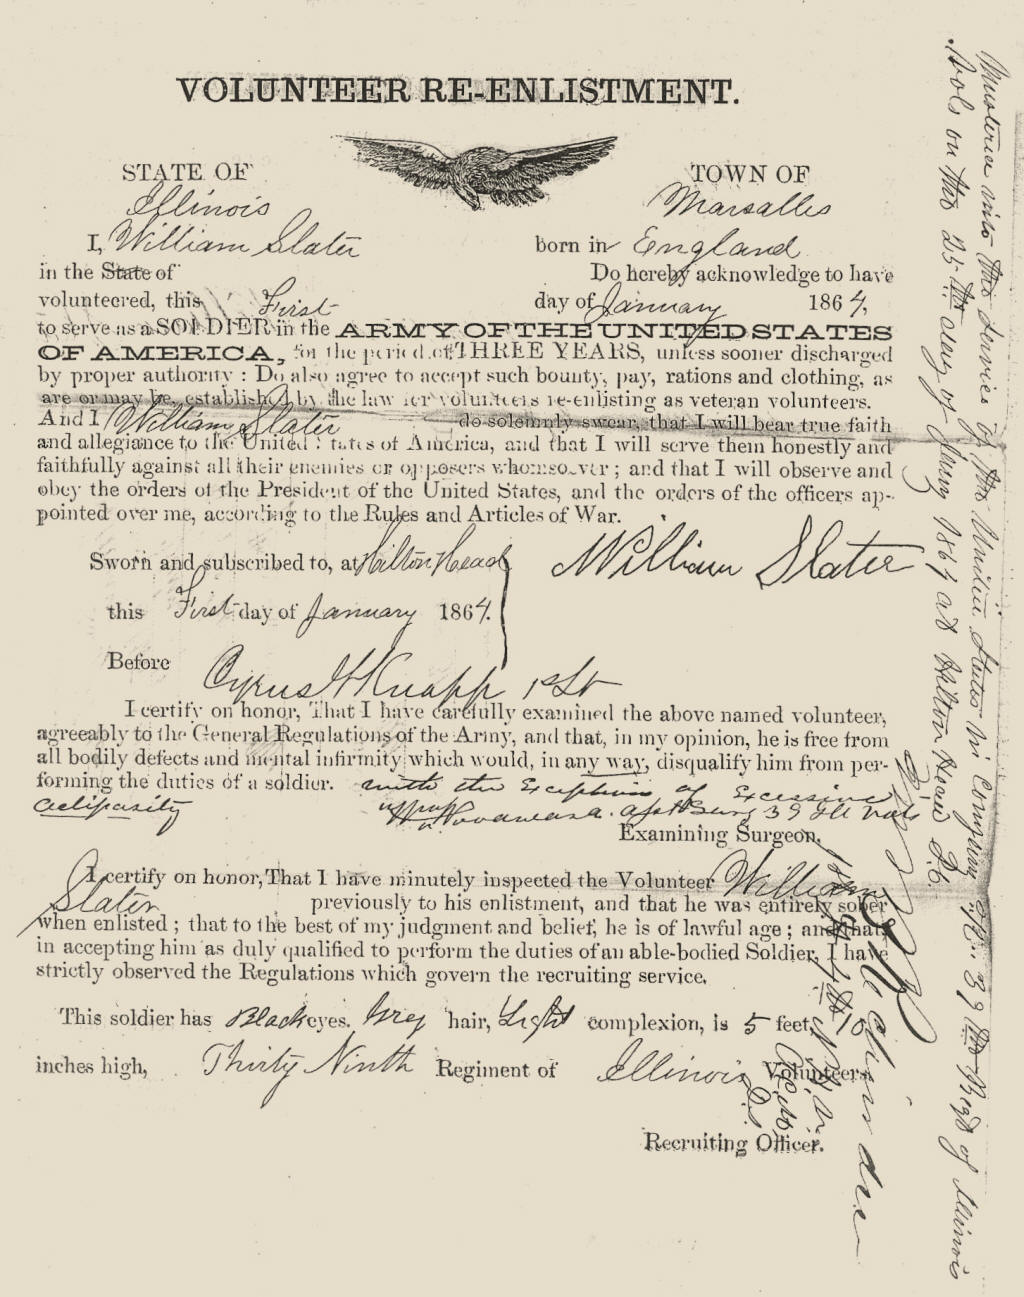 VOLUNTEER RE-ENLISTMENT.
STATE OF TOWN OF
Illinois Marsalles
I, William Slater born in England
in the State of Do hereby acknowledge to have
volunteered, this First day of January 1864,
to serve as a SOLDIER in the ARMY OF THE UNITED STATES
OF AMERICA, for the period of THREE YEARS, unless sooner discharged
by proper authority: Do also agree to accept such bounty, pay, rations and clothing, as
are or may be, established by the law for volunteers re-enlisting as veteran volunteers.
And I William Slater do solemnly swear, that I will bear true faith
and allegiance to the United States of America, and that I will serve them honestly and
faithfully against all their enemies or opposers whomsoever; and that I will observe and
obey the orders of the President of the United States, and the orders of the officers ap-
pointed over me, according to the Rules and Articles of War.
Sworn and subscribed to, at Hilton Head William Slater
this First day of January 1864.
Before Cyrus H Knapp 1st Lt
I certify on honor, That I have carefully examined the above named volunteer,
agreeably to the General Regulations of the Army, and that, in my opinion, he is free from
all bodily defects and mental infirmity which would, in any way, disqualify him from per-
forming the duties of a soldier. with the Exception of Excessive
adiposity Asst Surg 39 Ill Vols
Examining Surgeon.
I certify on honor, That I have minutely inspected the Volunteer William
Slater previously to his enlistment, and that he was entirely sober
when enlisted; that to the best of my judgment and belief, he is of lawful age; and that,
in accepting him as duly qualified to perform the duties of an able-bodied Soldier, I have
strictly observed the Regulations which govern the recruiting service.
This soldier has Black eyes. Grey hair, Light complexion, is 5 feet, 10
inches high, Thirty Ninth Regiment of Illinois Volunteers
Recruiting Officer.
Mustered into the Service of the United States in Company 39th Regt of Illinois
Vols on the 25th day of Jany 1864 at Hilton Head S.C.